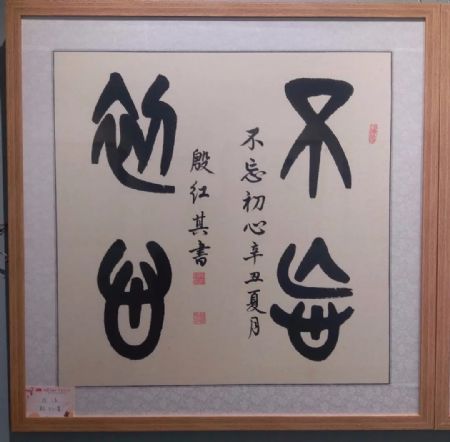 不忘
初心
不忘初心辛丑夏月
殷红其書